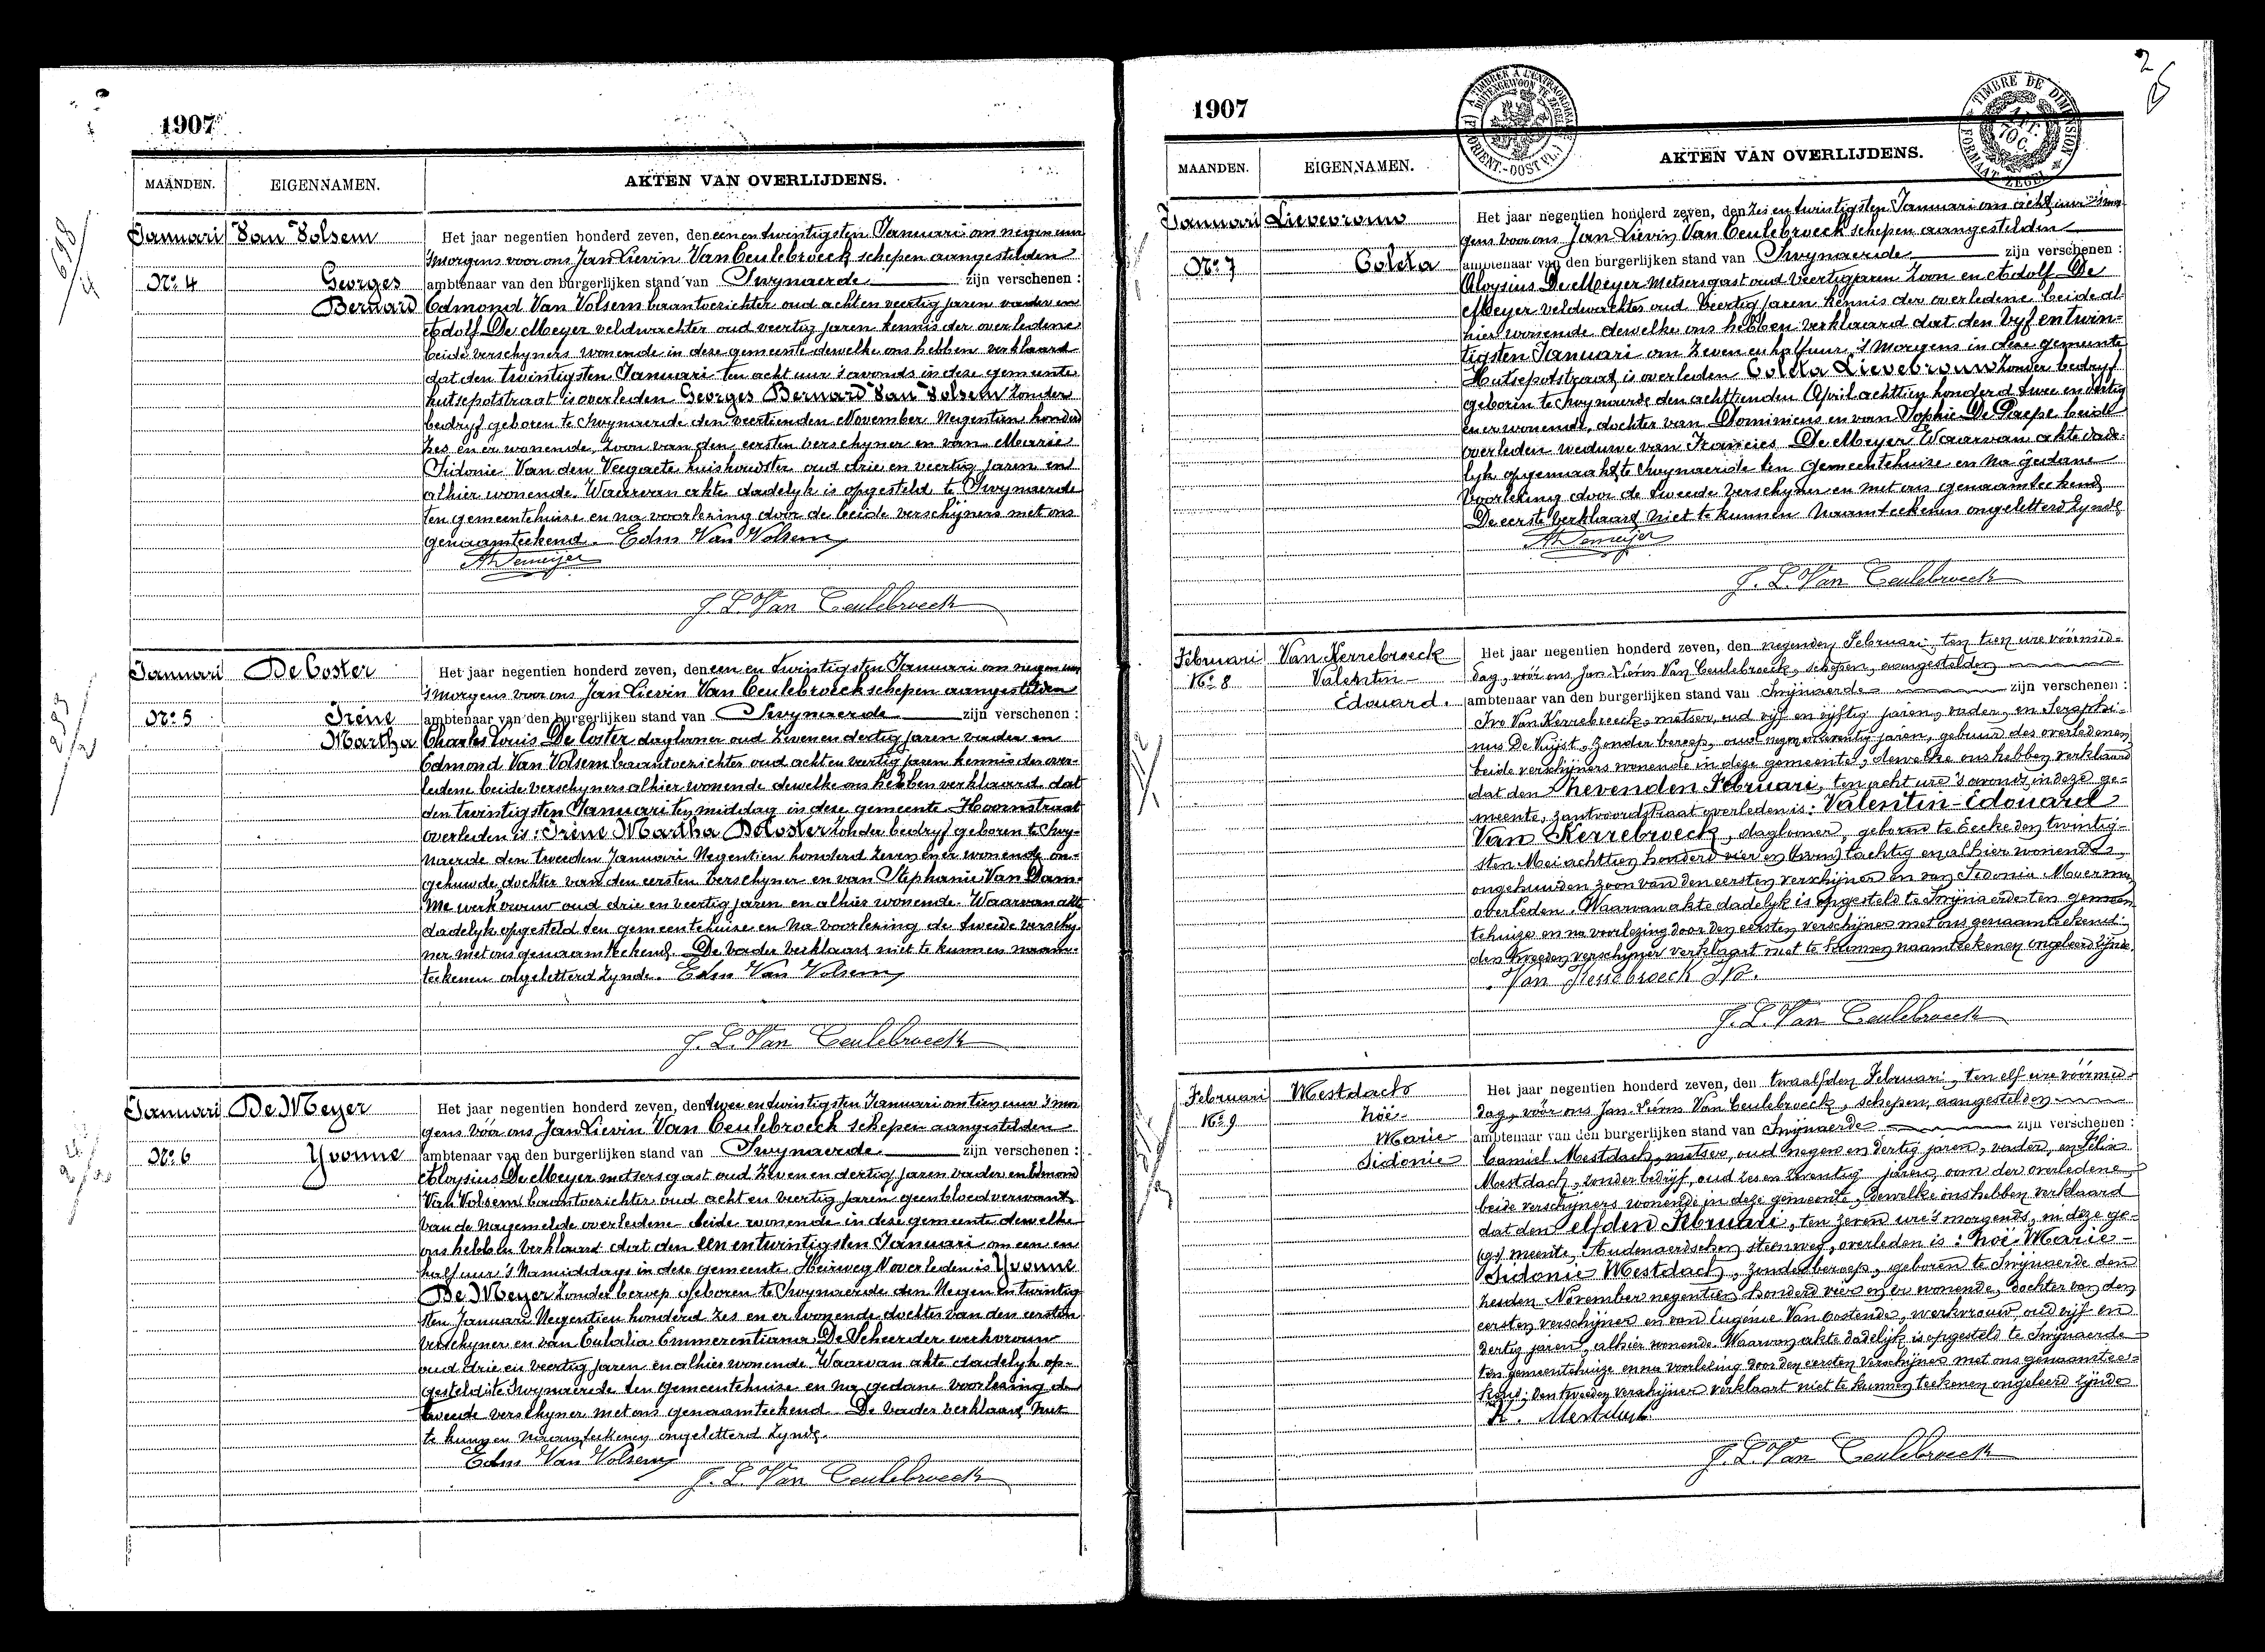 1907
MAANDEN.
EIGENNAMEN.
AKTEN VAN OVERLIJDENS.
Januari
Van Volsem
No. 4
Georges
Bernard
Het jaar negentien honderd zeven, den een en twintigsten Januari om negen uur
's morgens voor ons Jan Lievin Van Ceulebroeck schepen aangestelden
ambtenaar van den burgerlijken stand van Swynaerde zijn verschenen :
Edmond Van Volsem beambte oud acht en veertig jaren vader en
Adolf De Meyer veldwachter oud veertig jaren kennis der overledene
beide verschyners wonende in dese gemeente dewelke ons hebben verklaard
dat den twintigsten Januari ten acht uur 's avonds in dese gemeente
hutsepotstraat is overleden Georges Bernard Van Volsem zonder
bedryf geboren te Swynaerde den veertienden November Negentien honderd
zes en er wonende, zoon van den eersten verschyner en van Marie
Sidonie Van den Veegaete huishoudster oud drie en veertig jaren en
alhier wonende. Waarvan akte dadelyk is opgesteld te Swynaerde
ten gemeentehuise en na voorlezing door de beide verschijners met ons
genaamteekend. Edm Van Volsem
A Demeijer
J. L. Van Ceulebroeck
Januari
De Coster
No. 5
Irène
Martha
Het jaar negentien honderd zeven, den een en twintigsten Januari om negen uur
's morgens voor ons Jan Lievin Van Ceulebroeck schepen aangestelden
ambtenaar van den burgerlijken stand van Swynaerde zijn verschenen :
Charles Louis De Coster daglooner oud zeven en dertig jaren vader en
Edmond Van Volsem oud acht en veertig jaren kennis der over-
ledene beide verschyners alhier wonende dewelke ons hebben verklaard dat
den twintigsten Januari ten middag in dese gemeente Hoornstraat
overleden is: Irène Martha De Coster zonder bedryf geboren te Swy-
naerde den tweeden Januari Negentien honderd zeven en er wonende on-
gehuwde dochter van den eersten verschyner en van Stephanie Van Dam-
me werkvrouw oud drie en veertig jaren en alhier wonende. Waarvan akte
dadelyk opgesteld ten gemeentehuise en na voorlezing de tweede verschy-
ner met ons genaamteekend. De vader verklaart niet te kunnen naam-
teekenen ongeletterd zynde. Edm Van Volsem
J. L. Van Ceulebroeck
Januari
De Meyer
No. 6
Yvonne
Het jaar negentien honderd zeven, den twee en twintigsten Januari om tien uur 's mor
gens vóór ons Jan Lievin Van Ceulebroeck schepen aangestelden
ambtenaar van den burgerlijken stand van Swynaerde zijn verschenen :
Aloysius De Meyer metsersgast oud zeven en dertig jaren vader en Edmond
Van Volsem oud acht en veertig jaren geen bloedverwant
van de nagemelde overledene beide wonende in dese gemeente dewelke
ons hebben verklaard dat den een en twintigsten Januari om een en
half uur 's Namiddags in dese gemeente Heirweg N overleden is Yvonne
De Meyer zonder beroep geboren te Swynaerde den Negen en twintig
sten Januari Negentien honderd zes en er wonende dochter van den eersten
verschyner en van Eulalia Emmerentiana De Scheerder werkvrouw
oud drie en veertig jaren en alhier wonende. Waarvan akte dadelyk op-
gesteld te Swynaerde ten gemeentehuise en na gedane voorlezing de
tweede verschyner met ons genaamteekend. De vader verklaart niet
te kunnen naamteekenen ongeletterd zynde.
Edm Van Volsem
J. L. Van Ceulebroeck
2
1907
MAANDEN.
EIGENNAMEN.
AKTEN VAN OVERLIJDENS.
TIMBRE DE DIMENSION
FORMAAT ZEGEL
Januari
Lievevrouw
No. 7
Coleta
Het jaar negentien honderd zeven, den zes en twintigsten Januari om acht uur 's mor
gens voor ons Jan Lievin Van Ceulebroeck schepen aangestelden
ambtenaar van den burgerlijken stand van Swynaerde zijn verschenen :
Aloysius De Meyer Metsersgast oud Veertig jaren zoon en Adolf De
Meyer veldwachter oud Veertig jaren kennis der overledene beide al-
hier wonende dewelke ons hebben verklaard dat den Vyf en twin-
tigsten Januari om zeven en half uur 's Morgens in dese gemeente
Hutsepotstraat is overleden Coleta Lievevrouw zonder bedryf
geboren te Swynaerde den achttienden April achttien honderd twee en dertig
en er wonende, dochter van Dominicus en van Sophie De Paepe beide
overleden weduwe van Francies De Meyer Waarvan akte dade-
lyk opgemaakt te Swynaerde ten Gemeentehuise en na gedane
voorlezing door de tweede verschyner en met ons genaamteekend
De eerste verklaard niet te kunnen naamteekenen ongeletterd zynde
A Demeijer
J. L. Van Ceulebroeck
Februari
Van Kerrebroeck
No. 8
Valentin
Edouard.
Het jaar negentien honderd zeven, den negenden Februari, ten tien ure vóórmid-
dag, vóór ons Jan Lievin Van Ceulebroeck, schepen, aangestelden
ambtenaar van den burgerlijken stand van Swijnaerde zijn verschenen :
Ivo Van Kerrebroeck, metser, oud vijf en vijftig jaren, vader, en Seraphi-
nus De Vuyst, zonder beroep, oud negen en zeventig jaren, gebuur des overledenen
beide verschijners wonende in deze gemeente, dewelke ons hebben verklaard
dat den Zevenden Februari, ten acht ure 's avonds, in deze ge-
meente, zantvoordstraat overleden is: Valentin-Edouard
Van Kerrebroeck, daglooner, geboren te Eecke den twintig-
sten Mei achttien honderd vier en tachtig en alhier wonende,
ongehuwden zoon van den eersten verschijner en van Sidonie Moerman
overleden. Waarvan akte dadelijk is opgesteld te Swijnaerde ten gemeen-
tehuize en na voorlezing door den eersten verschijner met ons genaamteekend;
den tweeden verschijner verklaart niet te kunnen naamteekenen ongeleerd zijnde.
Van Kerrebroeck Ivo.
J. L. Van Ceulebroeck
Februari
Mestdach
No. 9
Zoë
Marie
Sidonie
Het jaar negentien honderd zeven, den twaalfden Februari, ten elf ure vóórmid-
dag, vóór ons Jan Lievin Van Ceulebroeck, schepen, aangestelden
ambtenaar van den burgerlijken stand van Swijnaerde zijn verschenen :
Camiel Mestdach, metser, oud negen en dertig jaren, vader, en Félix
Mestdach, zonder bedrijf, oud zes en zeventig jaren, oom der overledene,
beide verschijners wonende in deze gemeente, dewelke ons hebben verklaard
dat den elfden Februari, ten zeven ure 's morgends, in deze ge-
(ge) meente, Audenaerdschen steenweg, overleden is: Zoë Marie-
Sidonie Mestdach, zonder beroep, geboren te Swijnaerde den
November negentien honderd vier en er wonende, dochter van den
eersten verschijner en van Eugenie Van Oostende, werkvrouw, oud vijf en
dertig jaren, alhier wonende. Waarvan akte dadelijk is opgesteld te Swijnaerde
ten gemeentehuize en na voorlezing door den eersten verschijner met ons genaamtee-
kend; den tweeden verschijner verklaart niet te kunnen teekenen ongeleerd zijnde
K. Mestdach
J. L. Van Ceulebroeck